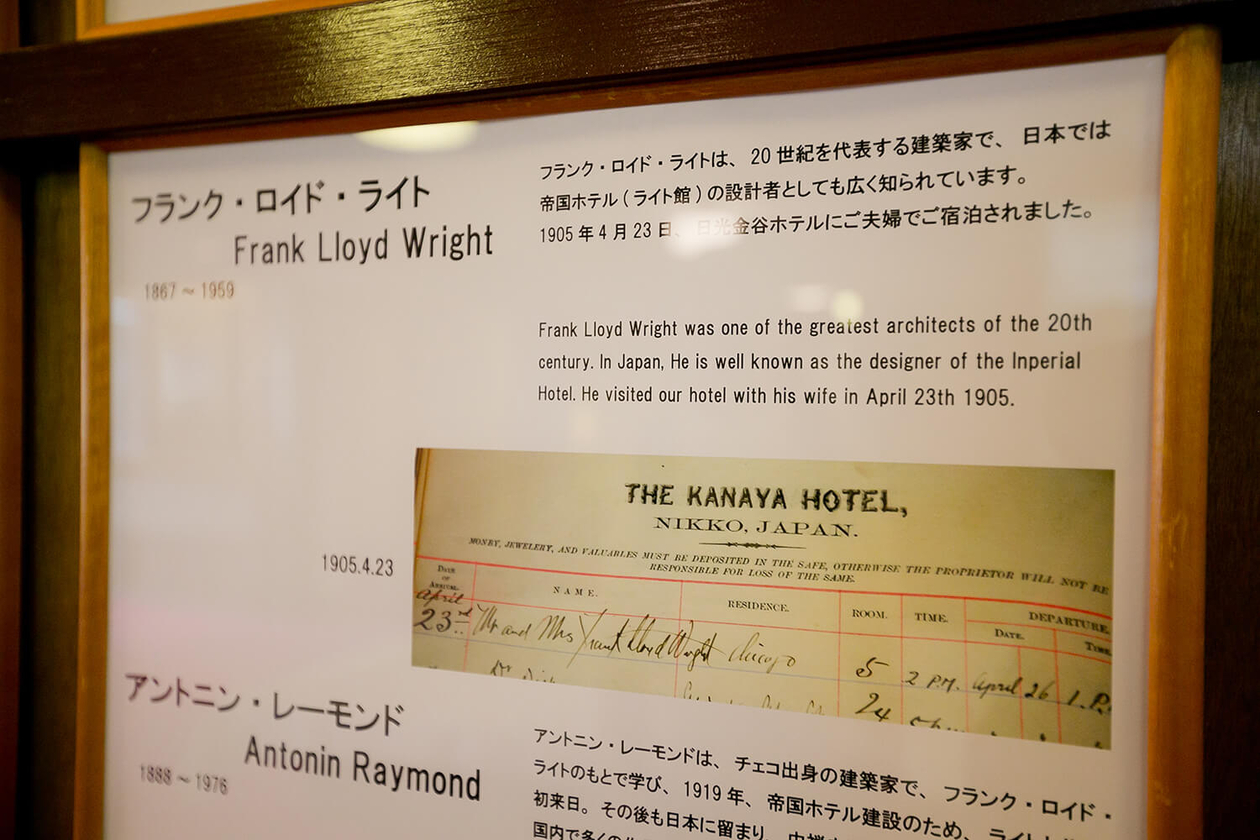 フランク・ロイド・ライト
Frank Lloyd Wright
1867 ～ 1959
フランク・ロイド・ライトは、 20 世紀を代表する建築家で、 日本では
帝国ホテル ( ライト館 ) の設計者としても広く知られています。
1905 年 4 月 23 日、 日光金谷ホテルにご夫婦でご宿泊されました。
Frank Lloyd Wright was one of the greatest architects of the 20th
century. In Japan, He is well known as the designer of the Inperial
Hotel. He visited our hotel with his wife in April 23th 1905.
1905.4.23
THE KANAYA HOTEL,
NIKKO, JAPAN.
MONEY, JEWELERY, AND VALUABLES MUST BE DEPOSITED IN THE SAFE, OTHERWISE THE PROPRIETOR WILL NOT BE
RESPONSIBLE FOR LOSS OF THE SAME.
DATE OF ARRIVAL. NAME. RESIDENCE. ROOM. TIME. DEPARTURE.
DATE. TIME.
April
23rd Mr and Mrs Frank Lloyd Wright Chicago 5 2 PM. April 26 1 P.
Dr. 24
アントニン・レーモンド
Antonin Raymond
1888 ～ 1976
アントニン・レーモンドは、 チェコ出身の建築家で、 フランク・ロイド・
ライトのもとで学び、 1919 年、 帝国ホテル建設のため、 ライトと
初来日。 その後も日本に留まり、
国内で多くの